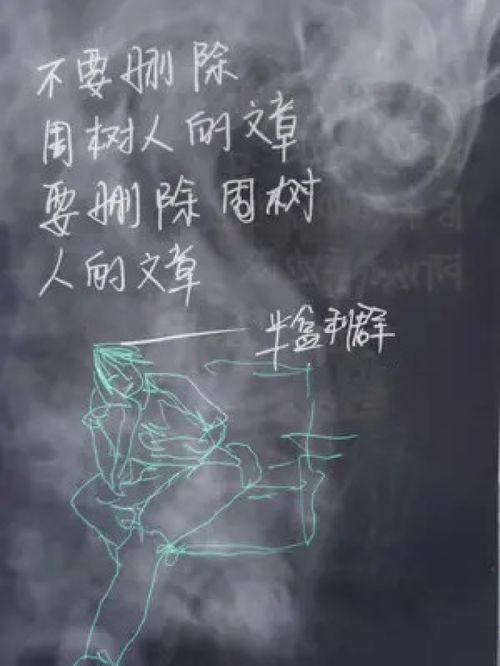 不要删除
周树人的文章
要删除周树
人的文章
半盆利群